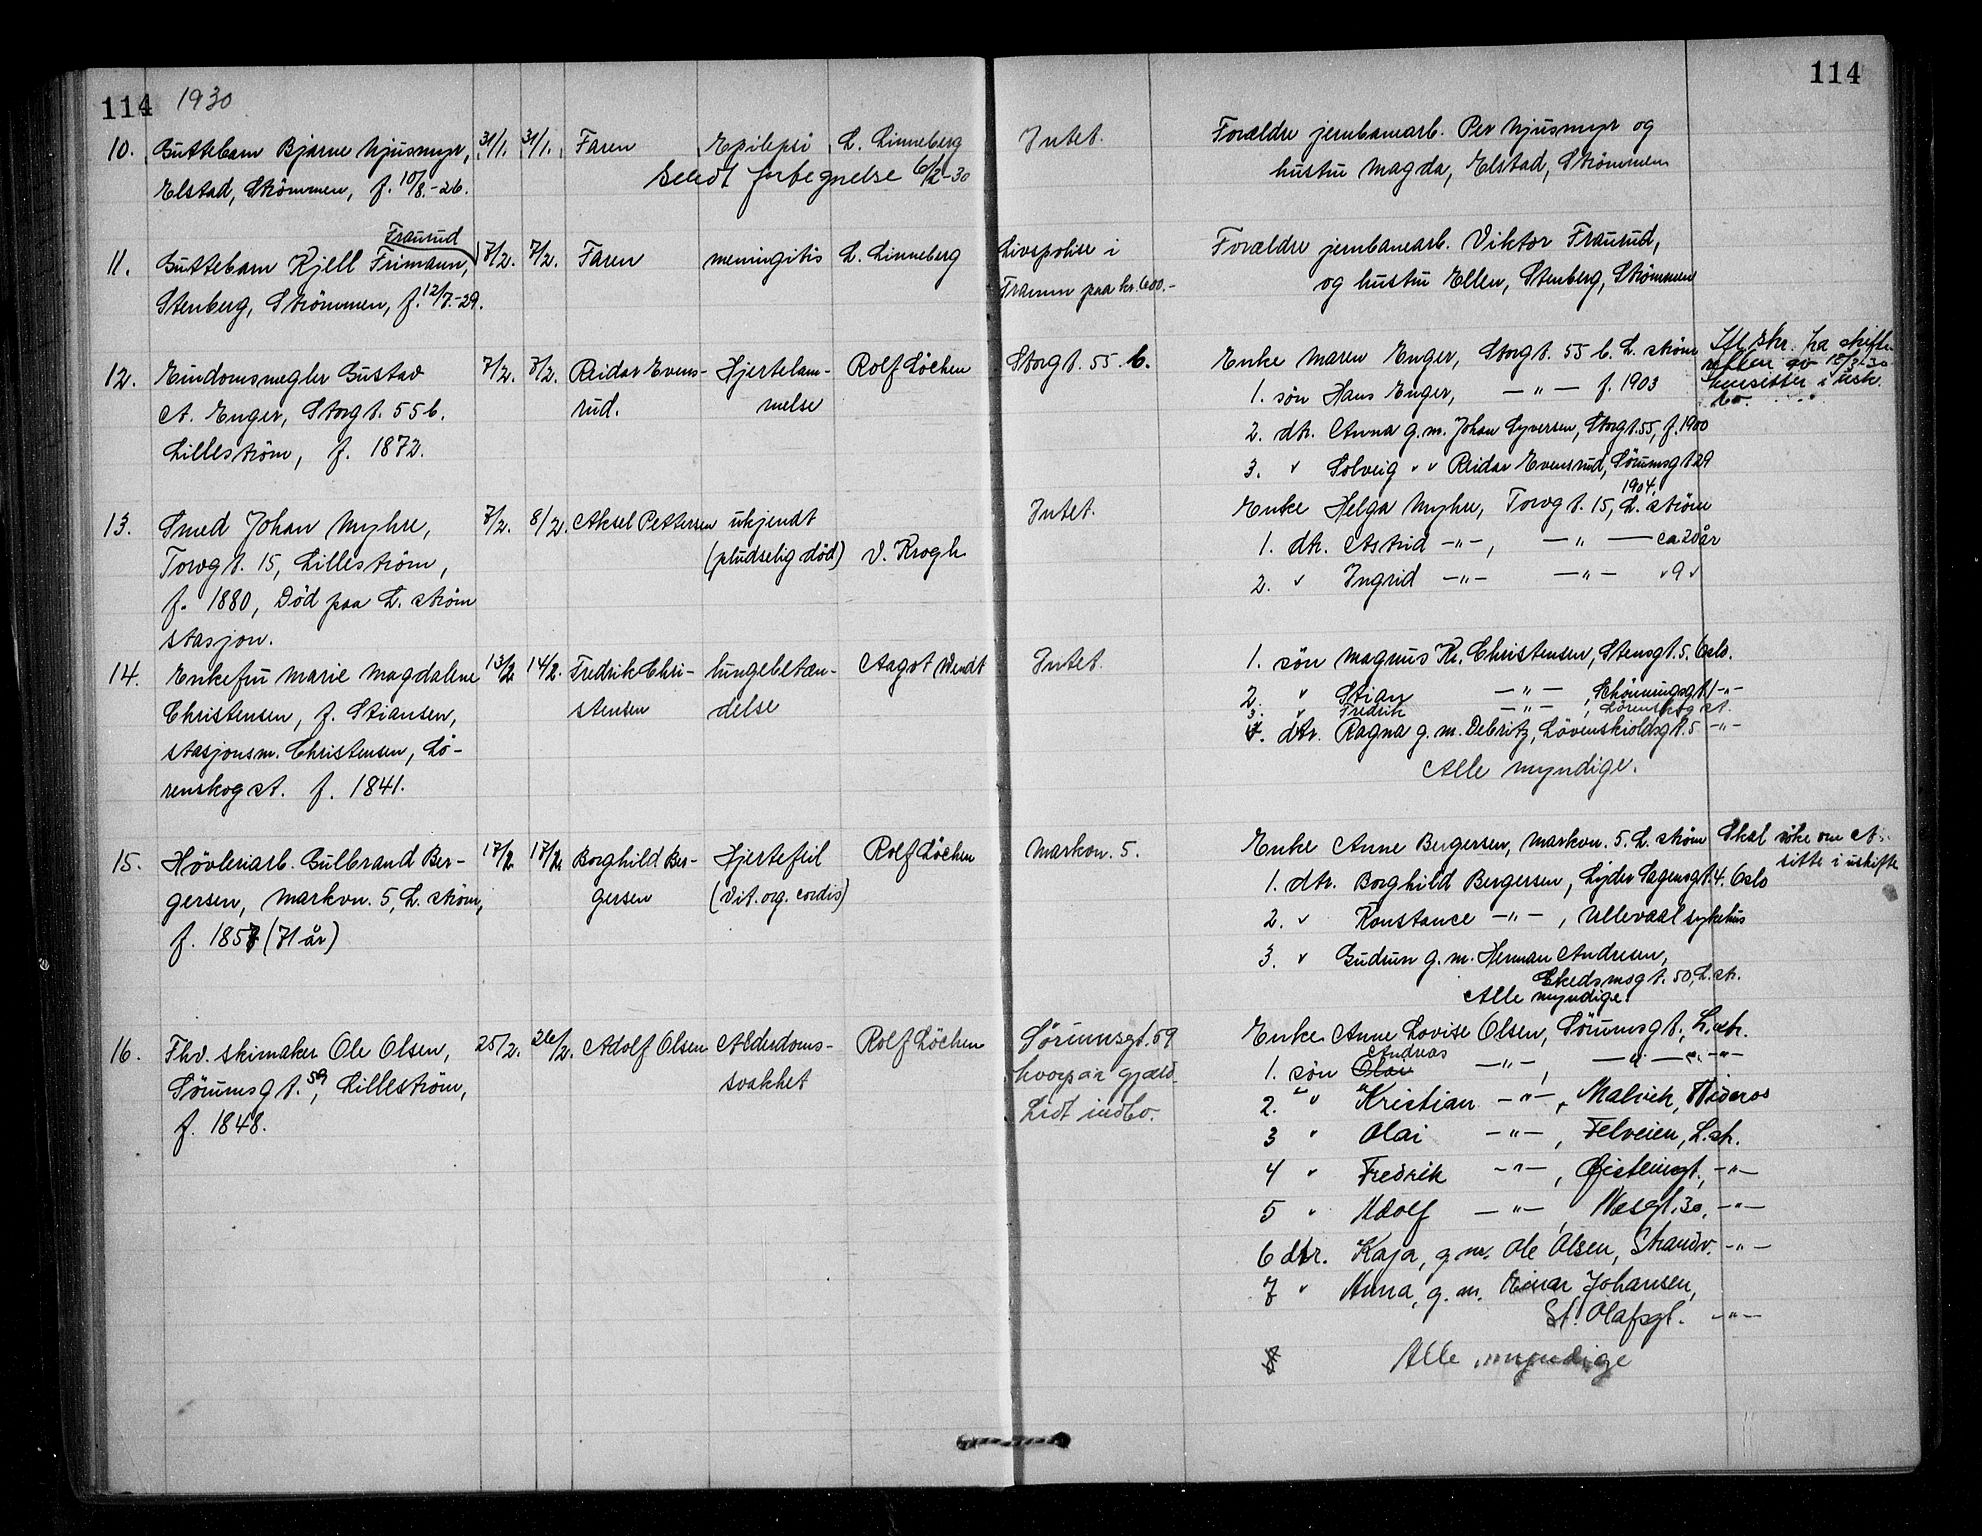 114 1930
114
10. Guttebarn Bjarne Mjusmyr, 31/1. 31/1. Faren Epilepsi L. Linneberg Intet. Forældre jernbanearb. Per Mjusmyr og
Elstad, Strømmen, f. 10/8.-26. Sendt forbegnelse 6/2-30 hustru Magda, Elstad, Strømmen
Fraurud
11. Guttebarn Kjell Frimann, 7/2. 7/2. Faren Meningitis L. Linneberg Livspolise i Forældre jernbanearb. Viktor Fraurud,
Stenberg, Strømmen, f. 12/7.-29. Framm paa kr. 600.- og hustru Ellen, Stenberg, Strømmen
12. Eiendomsmegler Gustav 7/2. 7/2. Reidar Evens- Hjertelam- Rolf Løchen Storgt. 55 b. Enke Maren Enger, Storgt. 55 b. L. strøm
A. Enger, Storgt. 55 b. rud. melse 1. søn Hans Enger, —"— f. 1903
Lillestrøm, f. 1872. 2. dtr. Anna g.m. Johan Syversen, Storgt. 55, f. 1900
3. " Solveig " " Reidar Evensrud, Sørumsgt 29
1904.
av 18/3-30
bo.
13. Smed Johan Myhre, 7/2. 8/2. Aksel Pettersen ukjendt Intet. Enke Helga Myhre, Torvgt. 15, L. strøm
Torvgt. 15, Lillestrøm, (pludselig død) V. Krogh 1. dtr. Astrid —"—, —"— ca 20 år
f. 1880, Død paa L. strøm 2. " Ingrid —"— —"— " 9 "
stasjon.
14. Enkefru Marie Magdalene 13/2 14/2. Fredrik Chri- lungebetæn- Aagot Wendt Intet. 1. søn Magnus Kr. Christensen, Stensgt. 5. Oslo.
Christensen, f. Stiansen, stensen delse 2. " Stian —"—, Schönningsgt 1 —"—
3. " Fredrik —"—, Lørenskog st.
stasjonsm. Christensen, Lø- 4. dtr. Ragna g.m. Debritz, Løvenskioldsgt. 5 —"—
renskog st. f. 1841. Alle myndige.
15. Høvleriarb. Gulbrand Ber- 17/2 17/2 Borghild Ber- Hjertefeil Rolf Løchen Markvn. 5. Enke Anne Bergersen, Markvn. 5. L. strøm Skal søke om at
sitte i uskifte
gersen, Markvn. 5, L. strøm, gersen (Vit. org. cordis) 1. dtr. Borghild Bergersen, Lyder Sagensgt. 4. Oslo
f. 1857 (71 år) 2. " Konstance —"—, Ullevaal sykehus
3. " Gudrun g.m. Herman Andresen,
Skedsmogt. 50, L. str.
Alle myndige.
16. Fhv. skimaker Ole Olsen, 25/2. 26/2. Adolf Olsen Alderdoms- Rolf Løchen Sørumsgt. 59 Enke Anne Lovise Olsen, Sørumsgt., L. str.
Sørumsgt. 59, Lillestrøm, svakhet hvorpaa gjæld. 1. søn Andreas —"—, —"— —"—
f. 1848. Lidt indbo. 2. " Kristian —"—, Malvik, Nideros
3 " Olai —"—, Felveien, L. str.
4 " Fredrik —"—, Øisteinsgt., —"—
5 " Adolf —"—, Næsgt. 30, —"—
6 dtr. Kaja, g.m. Ole Olsen, Strandv. —"—
7 " Anna, g.m. Einar Johansen,
St. Olafsgt. —"—
Alle myndige